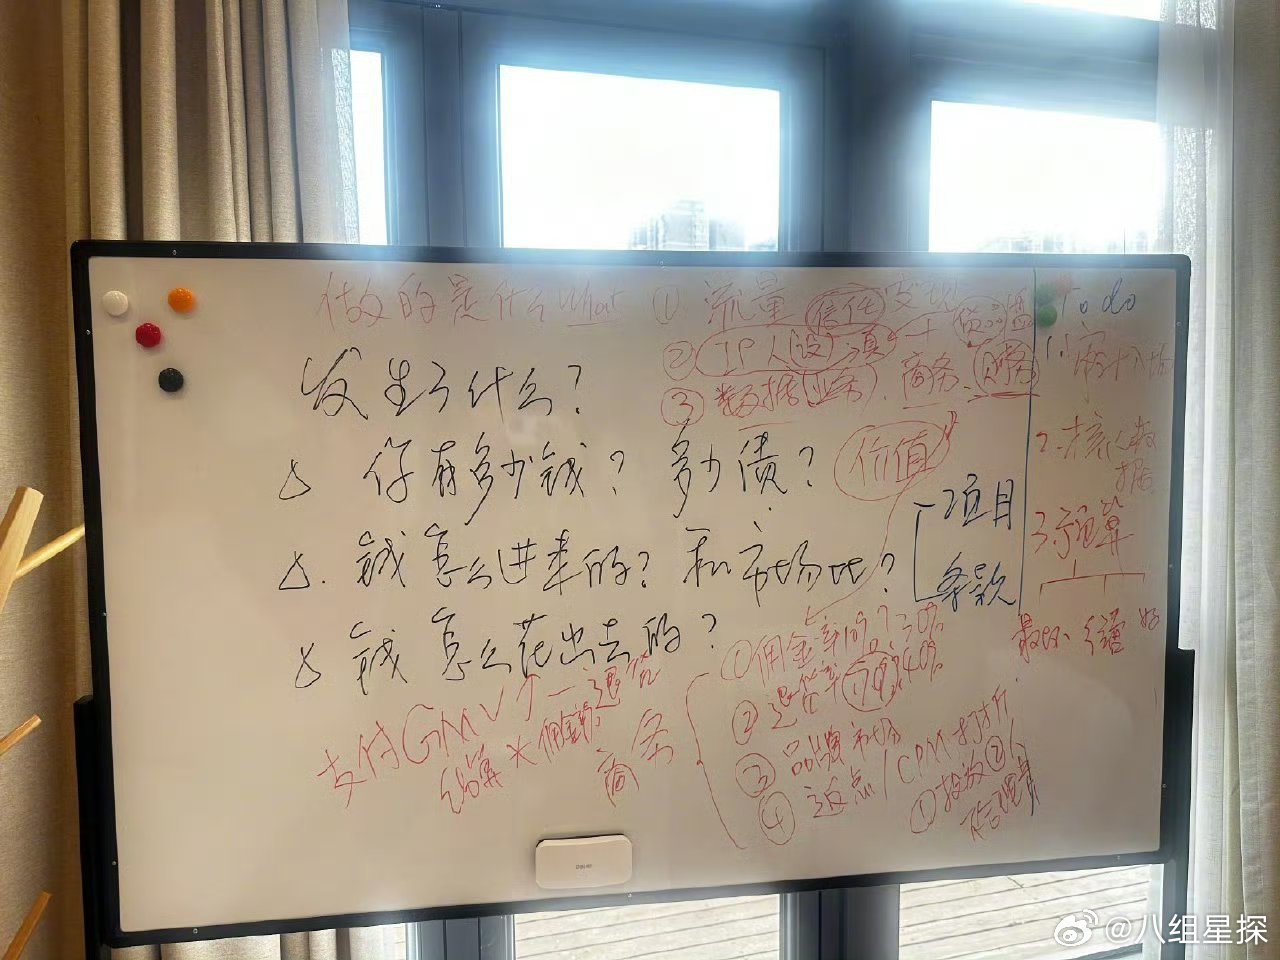 做的是什么 What
① 流量 信任 发现
② IP 人设 真
③ 数据(业务)、商务、财务
发生了什么?
△ 你有多少钱? 多少债? 价值
△. 钱怎么进来的? 和市场比?
△ 钱怎么花出去的?
项目
条款
支付GMV 一退货
结算 * 佣金
商务
① 佣金率 30%
② 退货率 70% 40%
③ 品牌市场
④ 返点/CPM打折
① 投放 ②
To do
1. 审计
2. 核 数据
3. 预算
deli
@八组星探